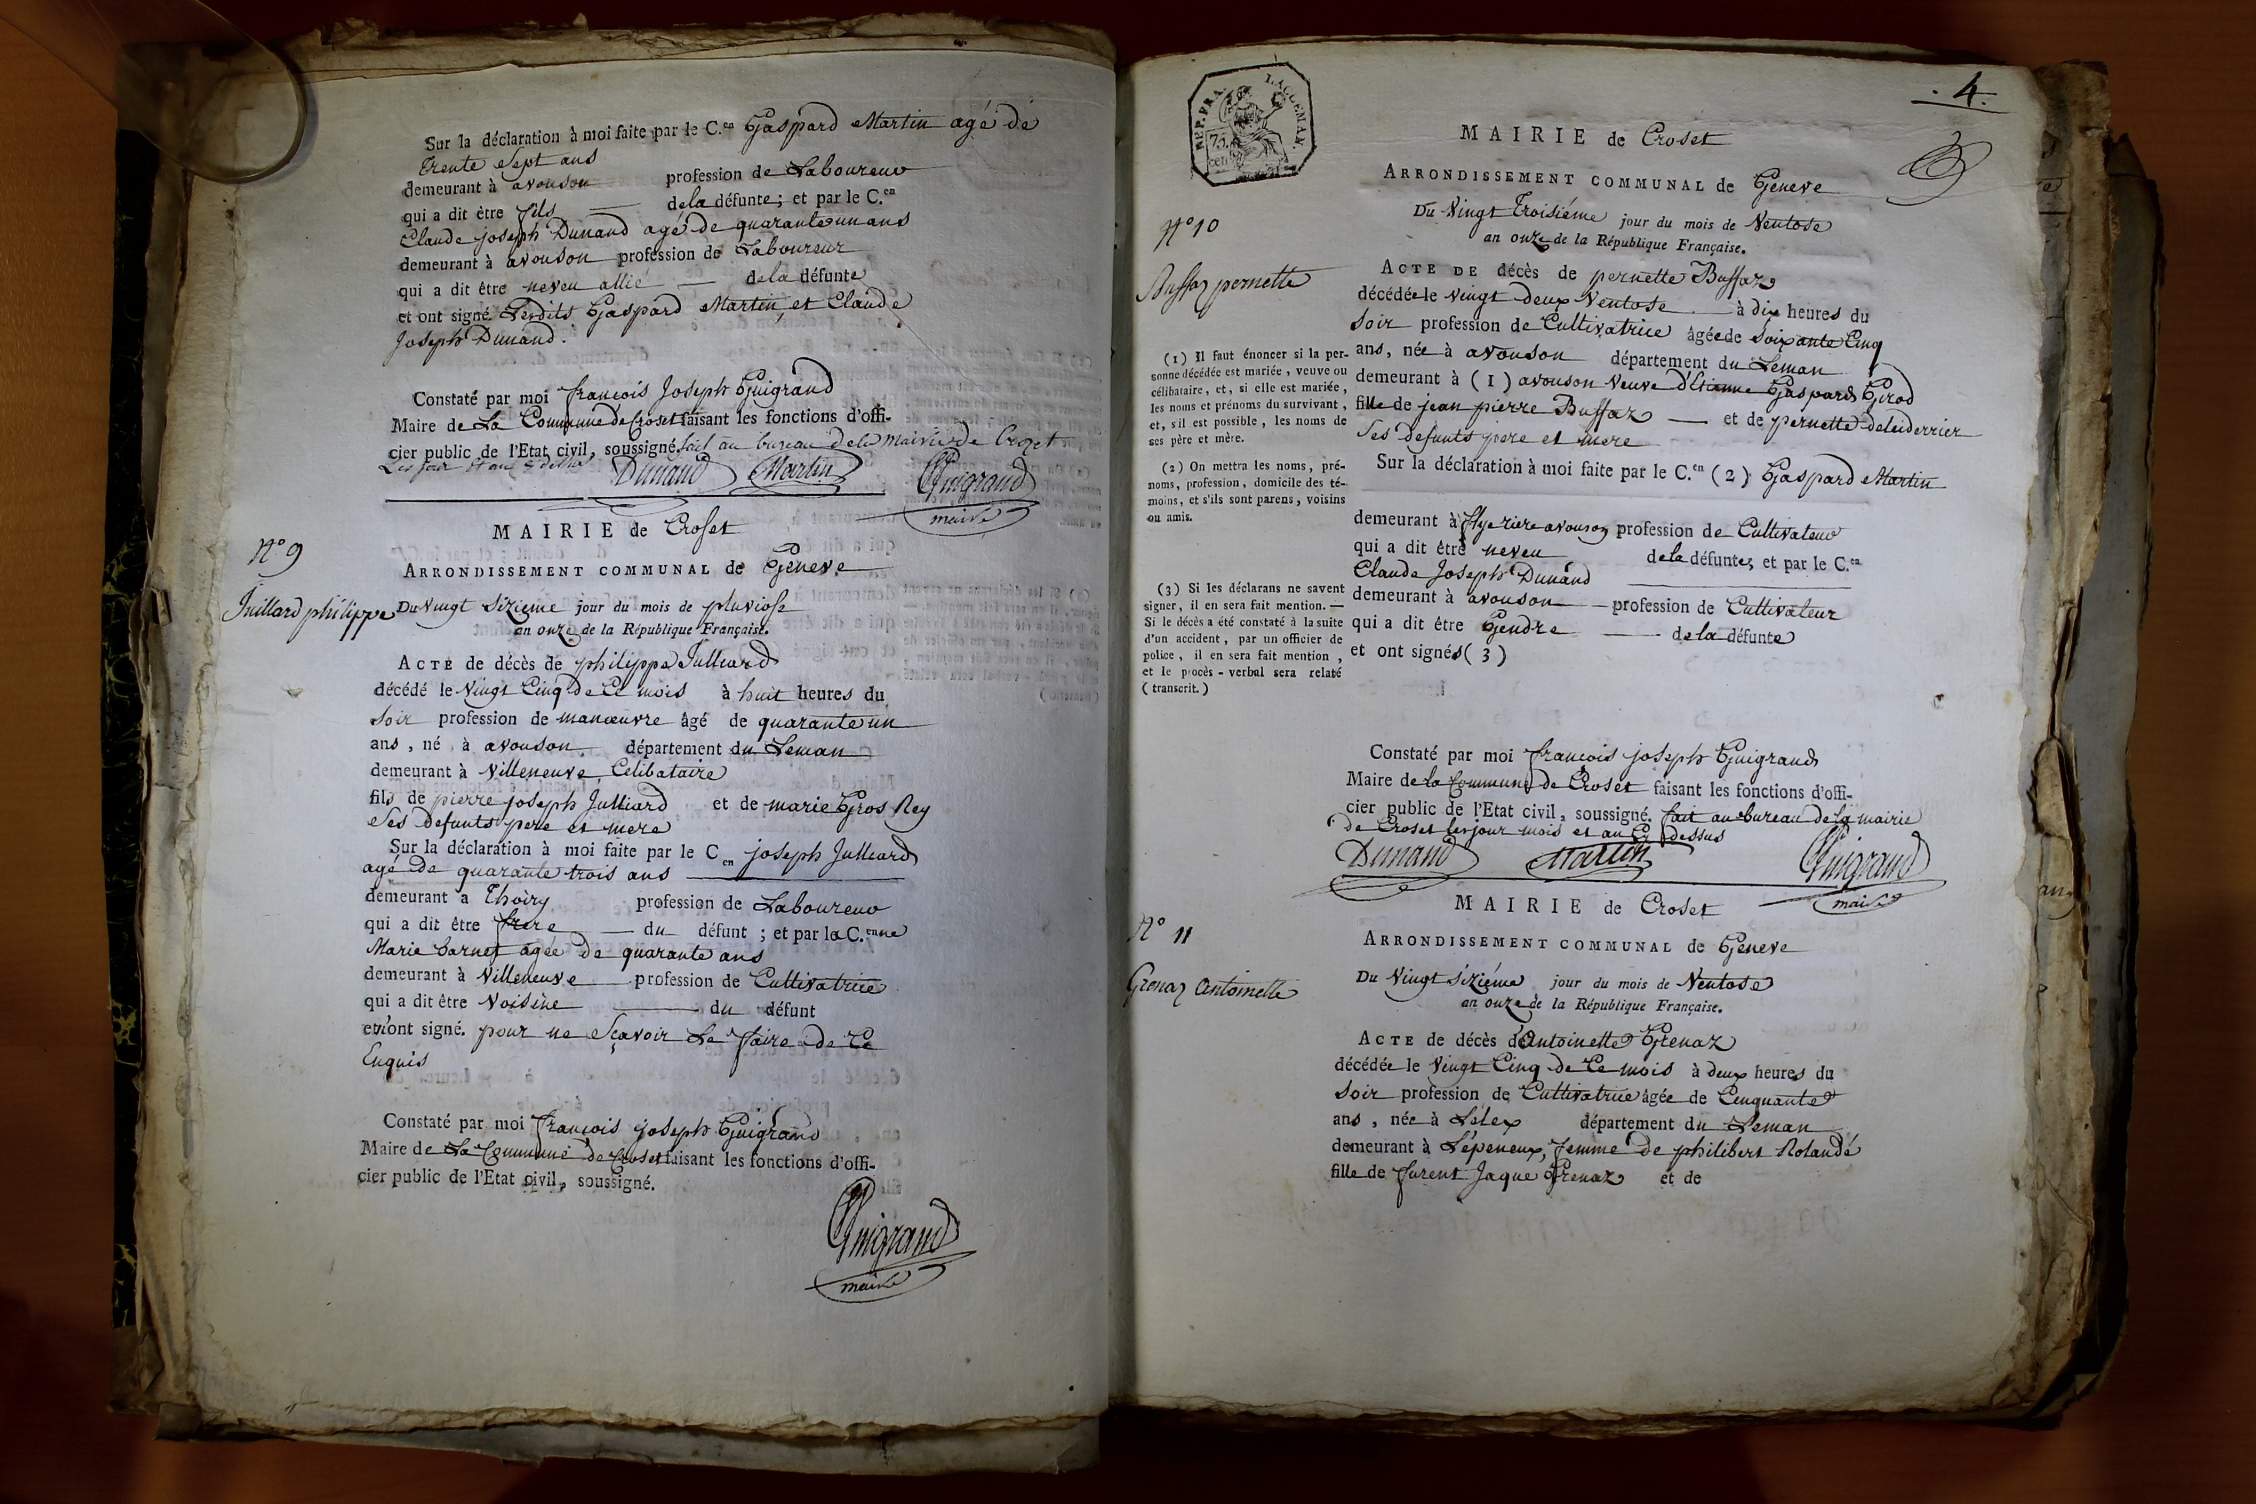 Sur la déclaration à moi faite par le C.en Gaspard Martin agé de
Trente Sept ans
demeurant à avouson profession de Laboureur
qui a dit être fils de la défunte; et par le C.en
Claude joseph Dunand agé de quarante un ans
demeurant à avouson profession de Laboureur
qui a dit être neveu allié de la défunte
et ont signé Lesdits Gaspard Martin, et Claude
Joseph Dunand.
Constaté par moi françois Joseph Guigrand
Maire de La Commune de Croset faisant les fonctions d'offi-
cier public de l'Etat civil, soussigné. fait au bureau de la mairie de Crozet
Les jour et an
Dunand Martin Guigrand
maire
MAIRIE de Croset
N° 9
ARRONDISSEMENT COMMUNAL de Geneve
Juillard philippe
Du Vingt Sizieme jour du mois de pluviose
an onze de la République Française.
ACTE de décès de philippe Julliard
décédé le Vingt Cinq de Ce mois à huit heures du
Soir profession de manœuvre âgé de quarante un
ans, né à avouson département du Leman
demeurant à Villeneuve, Celibataire
fils de pierre joseph Julliard et de marie Gros Rey
Ses defunts pere et mere
Sur la déclaration à moi faite par le C en joseph Julliard
agé de quarante trois ans
demeurant a Thoiry profession de Laboureur
qui a dit être frere du défunt; et par la C.enne
Marie Barnet agée de quarante ans
demeurant à Villeneuve profession de Cultivatrice
qui a dit être Voisine du défunt
et n'ont signé. pour ne Sçavoir Le faire de Ce
Enquis
Constaté par moi françois joseph Guigrand
Maire de La Commune de Croset faisant les fonctions d'offi-
cier public de l'Etat civil, soussigné.
Guigrand
maire
. 4.
REP. FRA. 75 cent.
MAIRIE de Croset
ARRONDISSEMENT COMMUNAL de Geneve
N° 10
Du Vingt Troisiéme jour du mois de Ventose
an onze de la République Française.
Buffaz pernette
ACTE DE décès de pernette Buffaz
décédée le Vingt deux Ventose à dix heures du
Soir profession de Cultivatrice âgée de Soixante Cinq
ans, née à avouson département du Leman
demeurant à (1) avouson Veuve d'Etienne Gaspard Girod
fille de jean pierre Buffaz et de pernette deleiderrier
Ses defunts pere et mere
(1) Il faut énoncer si la per-
sonne décédée est mariée, veuve ou
célibataire, et, si elle est mariée,
les noms et prénoms du survivant,
et, s'il est possible, les noms de
ses père et mère.
Sur la déclaration à moi faite par le C.en (2) Gaspard Martin
(2) On mettra les noms, pré-
noms, profession, domicile des té-
moins, et s'ils sont parens, voisins
ou amis.
demeurant à flye riere avouson profession de Cultivateur
qui a dit être neveu de la défunte; et par le C.en
Claude Joseph Dunand
demeurant à avouson profession de Cultivateur
qui a dit être Gendre de la défunte
et ont signés (3)
(3) Si les déclarans ne savent
signer, il en sera fait mention. —
Si le décès a été constaté à la suite
d'un accident, par un officier de
police, il en sera fait mention,
et le procès-verbal sera relaté
(transcrit.)
Constaté par moi françois joseph Guigrand
Maire de la Commune de Croset faisant les fonctions d'offi-
cier public de l'Etat civil, soussigné. fait au bureau de la mairie
de Croset les jour mois et an Cy dessus
Dunand Martin Guigrand
maire
MAIRIE de Croset
N° 11
ARRONDISSEMENT COMMUNAL de Geneve
Grenaz Antoinette
Du Vingt Siziéme jour du mois de Ventose
an onze de la République Française.
ACTE de décès d'Antoinette Grenaz
décédée le Vingt Cinq de Ce mois à deux heures du
Soir profession de Cultivatrice âgée de Cinquante
ans, née à Lélex département du Leman
demeurant à Lépeneux, femme de philibert Rolandé
fille de furent Jaque Grenaz et de